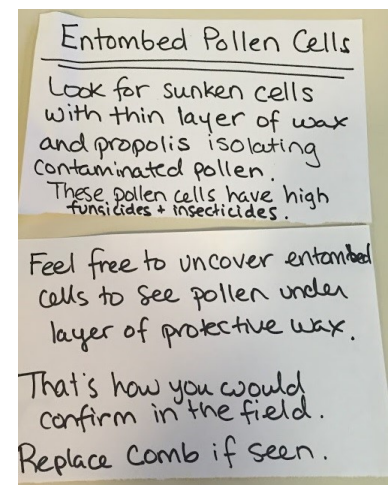 Entombed Pollen Cells
Look for sunken cells
with thin layer of wax
and propolis isolating
contaminated pollen.
These pollen cells have high
funsicides + insecticides.
Feel free to uncover entombed
cells to see pollen under
layer of protective wax.
That's how you would
confirm in the field.
Replace comb if seen.